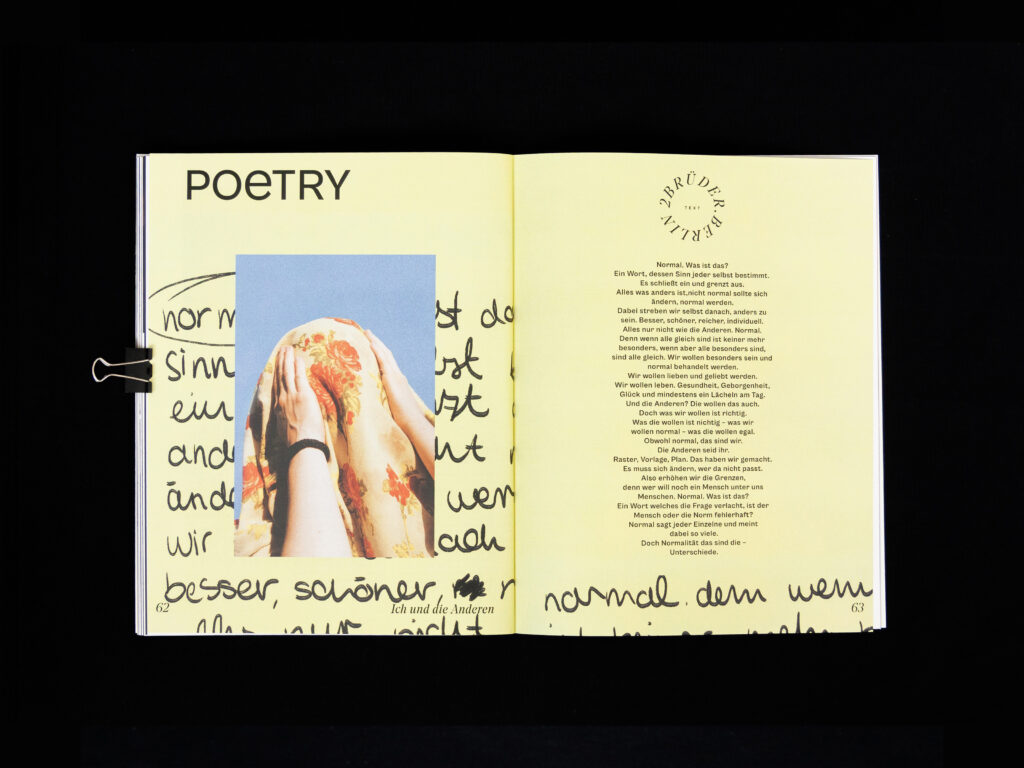 POeTRY
norm st da
sinn bst
ein zt
and ht
ände wer
wir ach
besser, schöner, r
62
Ich und die Anderen
nicht
2BRÜDER.BERLIN
TEXT
Normal. Was ist das?
Ein Wort, dessen Sinn jeder selbst bestimmt.
Es schließt ein und grenzt aus.
Alles was anders ist,nicht normal sollte sich
ändern, normal werden.
Dabei streben wir selbst danach, anders zu
sein. Besser, schöner, reicher, individuell.
Alles nur nicht wie die Anderen. Normal.
Denn wenn alle gleich sind ist keiner mehr
besonders, wenn aber alle besonders sind,
sind alle gleich. Wir wollen besonders sein und
normal behandelt werden.
Wir wollen lieben und geliebt werden.
Wir wollen leben. Gesundheit, Geborgenheit,
Glück und mindestens ein Lächeln am Tag.
Und die Anderen? Die wollen das auch.
Doch was wir wollen ist richtig.
Was die wollen ist nichtig – was wir
wollen normal – was die wollen egal.
Obwohl normal, das sind wir.
Die Anderen seid ihr.
Raster, Vorlage, Plan. Das haben wir gemacht.
Es muss sich ändern, wer da nicht passt.
Also erhöhen wir die Grenzen,
denn wer will noch ein Mensch unter uns
Menschen. Normal. Was ist das?
Ein Wort welches die Frage verlacht, ist der
Mensch oder die Norm fehlerhaft?
Normal sagt jeder Einzelne und meint
dabei so viele.
Doch Normalität das sind die –
Unterschiede.
normal. denn wenn
63